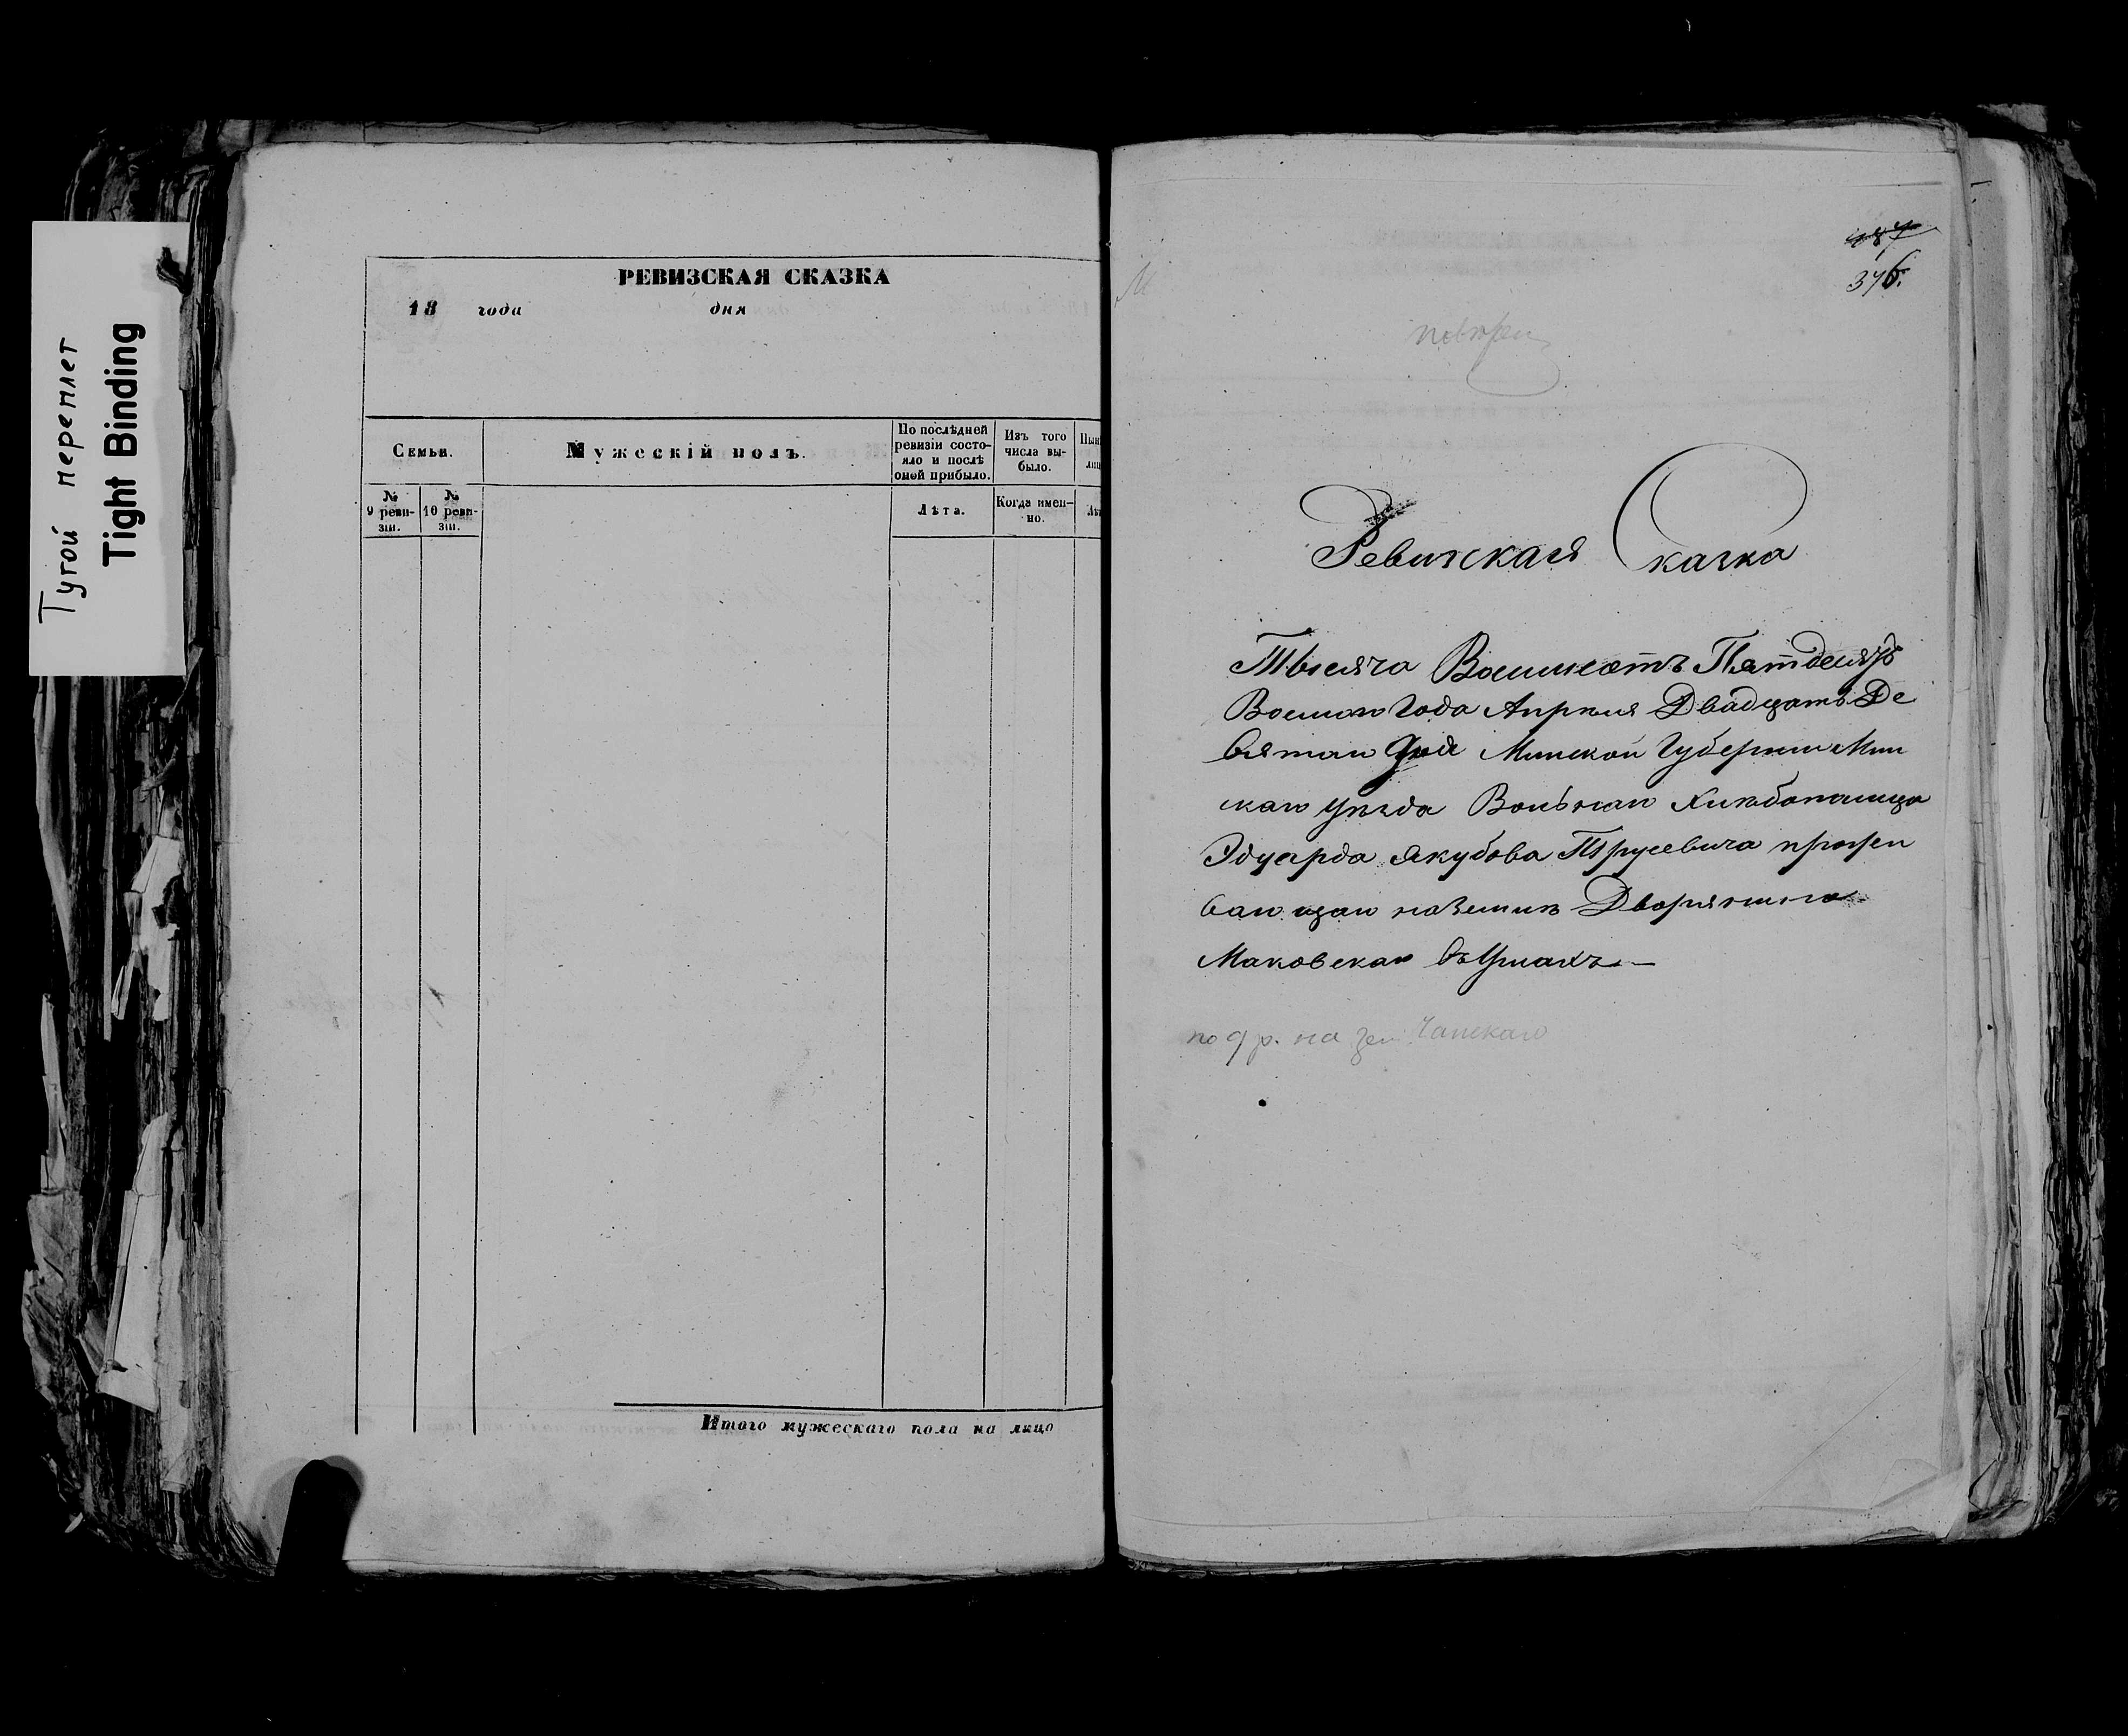 Тугой переплет
Tight Binding
РЕВИЗСКАЯ СКАЗКА
18 года дня
Семьи.
Мужескій полъ.
По послѣдней ревизіи состояло и послѣ оной прибыло.
Изъ того числа выбыло.
№ 9 ревизіи.
№ 10 ревизіи.
Лѣта.
Когда именно.
Итого мужескаго пола на лицо
376.
Ревизская Сказка
Тысяча Восимсотъ Пятдесятъ
Восмого Года Апрѣля Двадцать Де
вятаго дня Минской Губерніи Мин
скаго Уѣзда Вольнаго Хлѣбопашца
Эдуарда Якубова Трусевича прожи
вающаго на Земли Дворянина
Маковскаго въ
по 9 р. на зем. Чапскаго